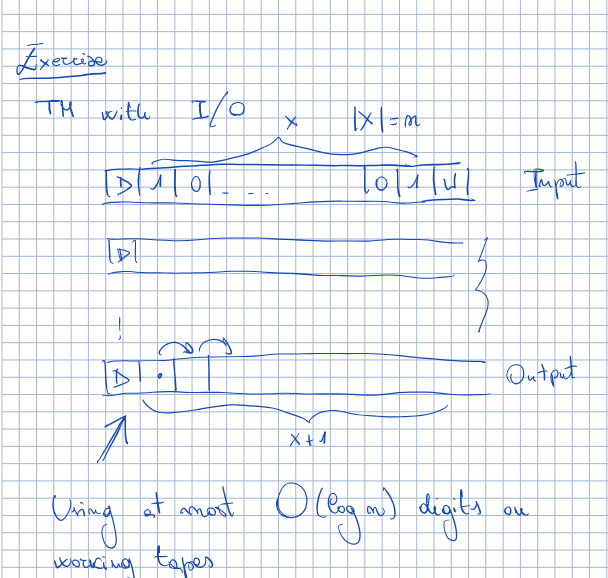 Exercise
TM with I/O x |X|=n
▷ 1 0 - ... 0 1 ⊔ Input
▷
▷ . Output
x+1
Using at most O(log n) digits on
working tapes